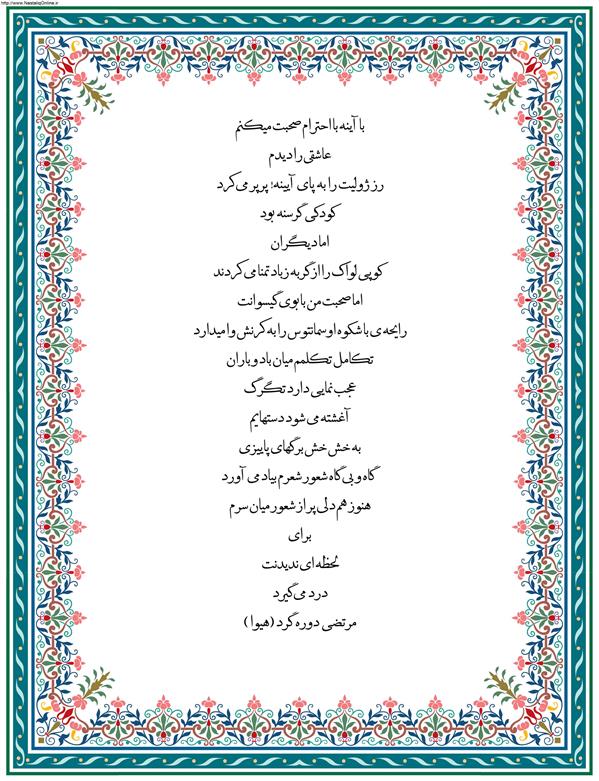 http://www.NastaliqOnline.ir
با آینه با احترام صحبت میکنم
عاشقی را دیدم
رز ژولیت را به پای آیینه؛ پرپر می‌کرد
کودکی گرسنه بود
اما دیگران
کوپی لواک را از گربه زباد تمنا می‌کردند
اما صحبت من با بوی گیسوانت
رایحه‌ی باشکوه اوسمانتوس را به کرنش وامیدارد
تکامل تکلمم میان باد و باران
عجب نمایی دارد تگرگ
آغشته می‌شود دستهایم
به خش خش برگهای پاییزی
گاه و بی‌گاه شعور شعرم بیاد می‌آورد
هنوز هم دلی پر از شعور میان سرم
برای
لحظه‌ای ندیدنت
درد می‌گیرد
مرتضی دوره گرد (هیوا)